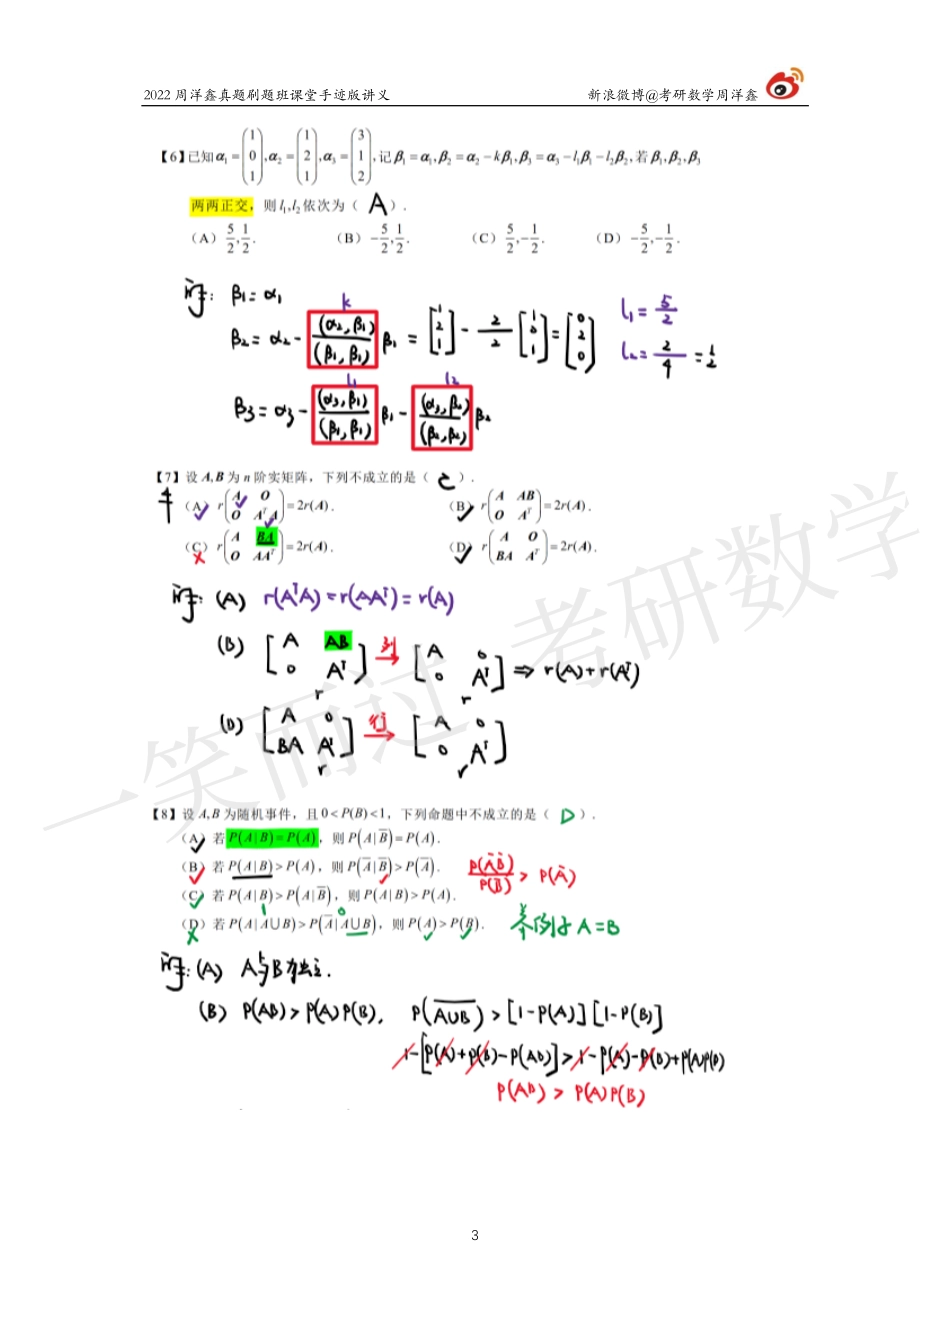 2022 周洋鑫真题刷题班课堂手迹版讲义 新浪微博@考研数学周洋鑫
【6】已知 α₁ = (1 0 1), α₂ = (1 2 1), α₃ = (3 1 2), 记 β₁ = α₁, β₂ = α₂ − kβ₁, β₃ = α₃ − l₁β₁ − l₂β₂, 若 β₁, β₂, β₃
两两正交，则 l₁, l₂ 依次为（ A ）.
（A）5/2, 1/2. （B）−5/2, 1/2. （C）5/2, −1/2. （D）−5/2, −1/2.
β₁ = α₁
k
β₂ = α₂ − (α₂, β₁)/(β₁, β₁) β₁ = [1 2 1] − 2/2 [1 0 1] = [0 2 0]
l₁ = 5/2
l₂ = 2/4 = 1/2
l₁ l₂
β₃ = α₃ − (α₃, β₁)/(β₁, β₁) β₁ − (α₃, β₂)/(β₂, β₂) β₂
【7】设 A, B 为 n 阶实矩阵，下列不成立的是（ C ）.
（A）r(A O; O AᵀA) = 2r(A). （B）r(A AB; O Aᵀ) = 2r(A).
（C）r(A BA; O AAᵀ) = 2r(A). （D）r(A O; BA Aᵀ) = 2r(A).
(A) r(AᵀA) = r(AAᵀ) = r(A)
(B) [A AB; 0 Aᵀ] 列→ [A 0; 0 Aᵀ] ⇒ r(A) + r(Aᵀ)
r r
(D) [A 0; BA Aᵀ] 行→ [A 0; 0 Aᵀ]
r r
【8】设 A, B 为随机事件，且 0 < P(B) < 1，下列命题中不成立的是（ D ）.
（A）若 P(A|B) = P(A)，则 P(A|B̄) = P(A).
（B）若 P(A|B) > P(A)，则 P(Ā|B̄) > P(Ā). P(ĀB̄)/P(B̄) > P(Ā)
（C）若 P(A|B) > P(A|B̄)，则 P(A|B) > P(A).
（D）若 P(A|A∪B) > P(Ā|A∪B)，则 P(A) > P(B). 举例子 A=B
(A) A与B独立.
(B) P(AB) > P(A)P(B), P(A̅∪̅B̅) > [1−P(A)][1−P(B)]
1−[P(A)+P(B)−P(AB)] > 1−P(A)−P(B)+P(A)P(B)
P(AB) > P(A)P(B)
一笑而过 考研数学
3